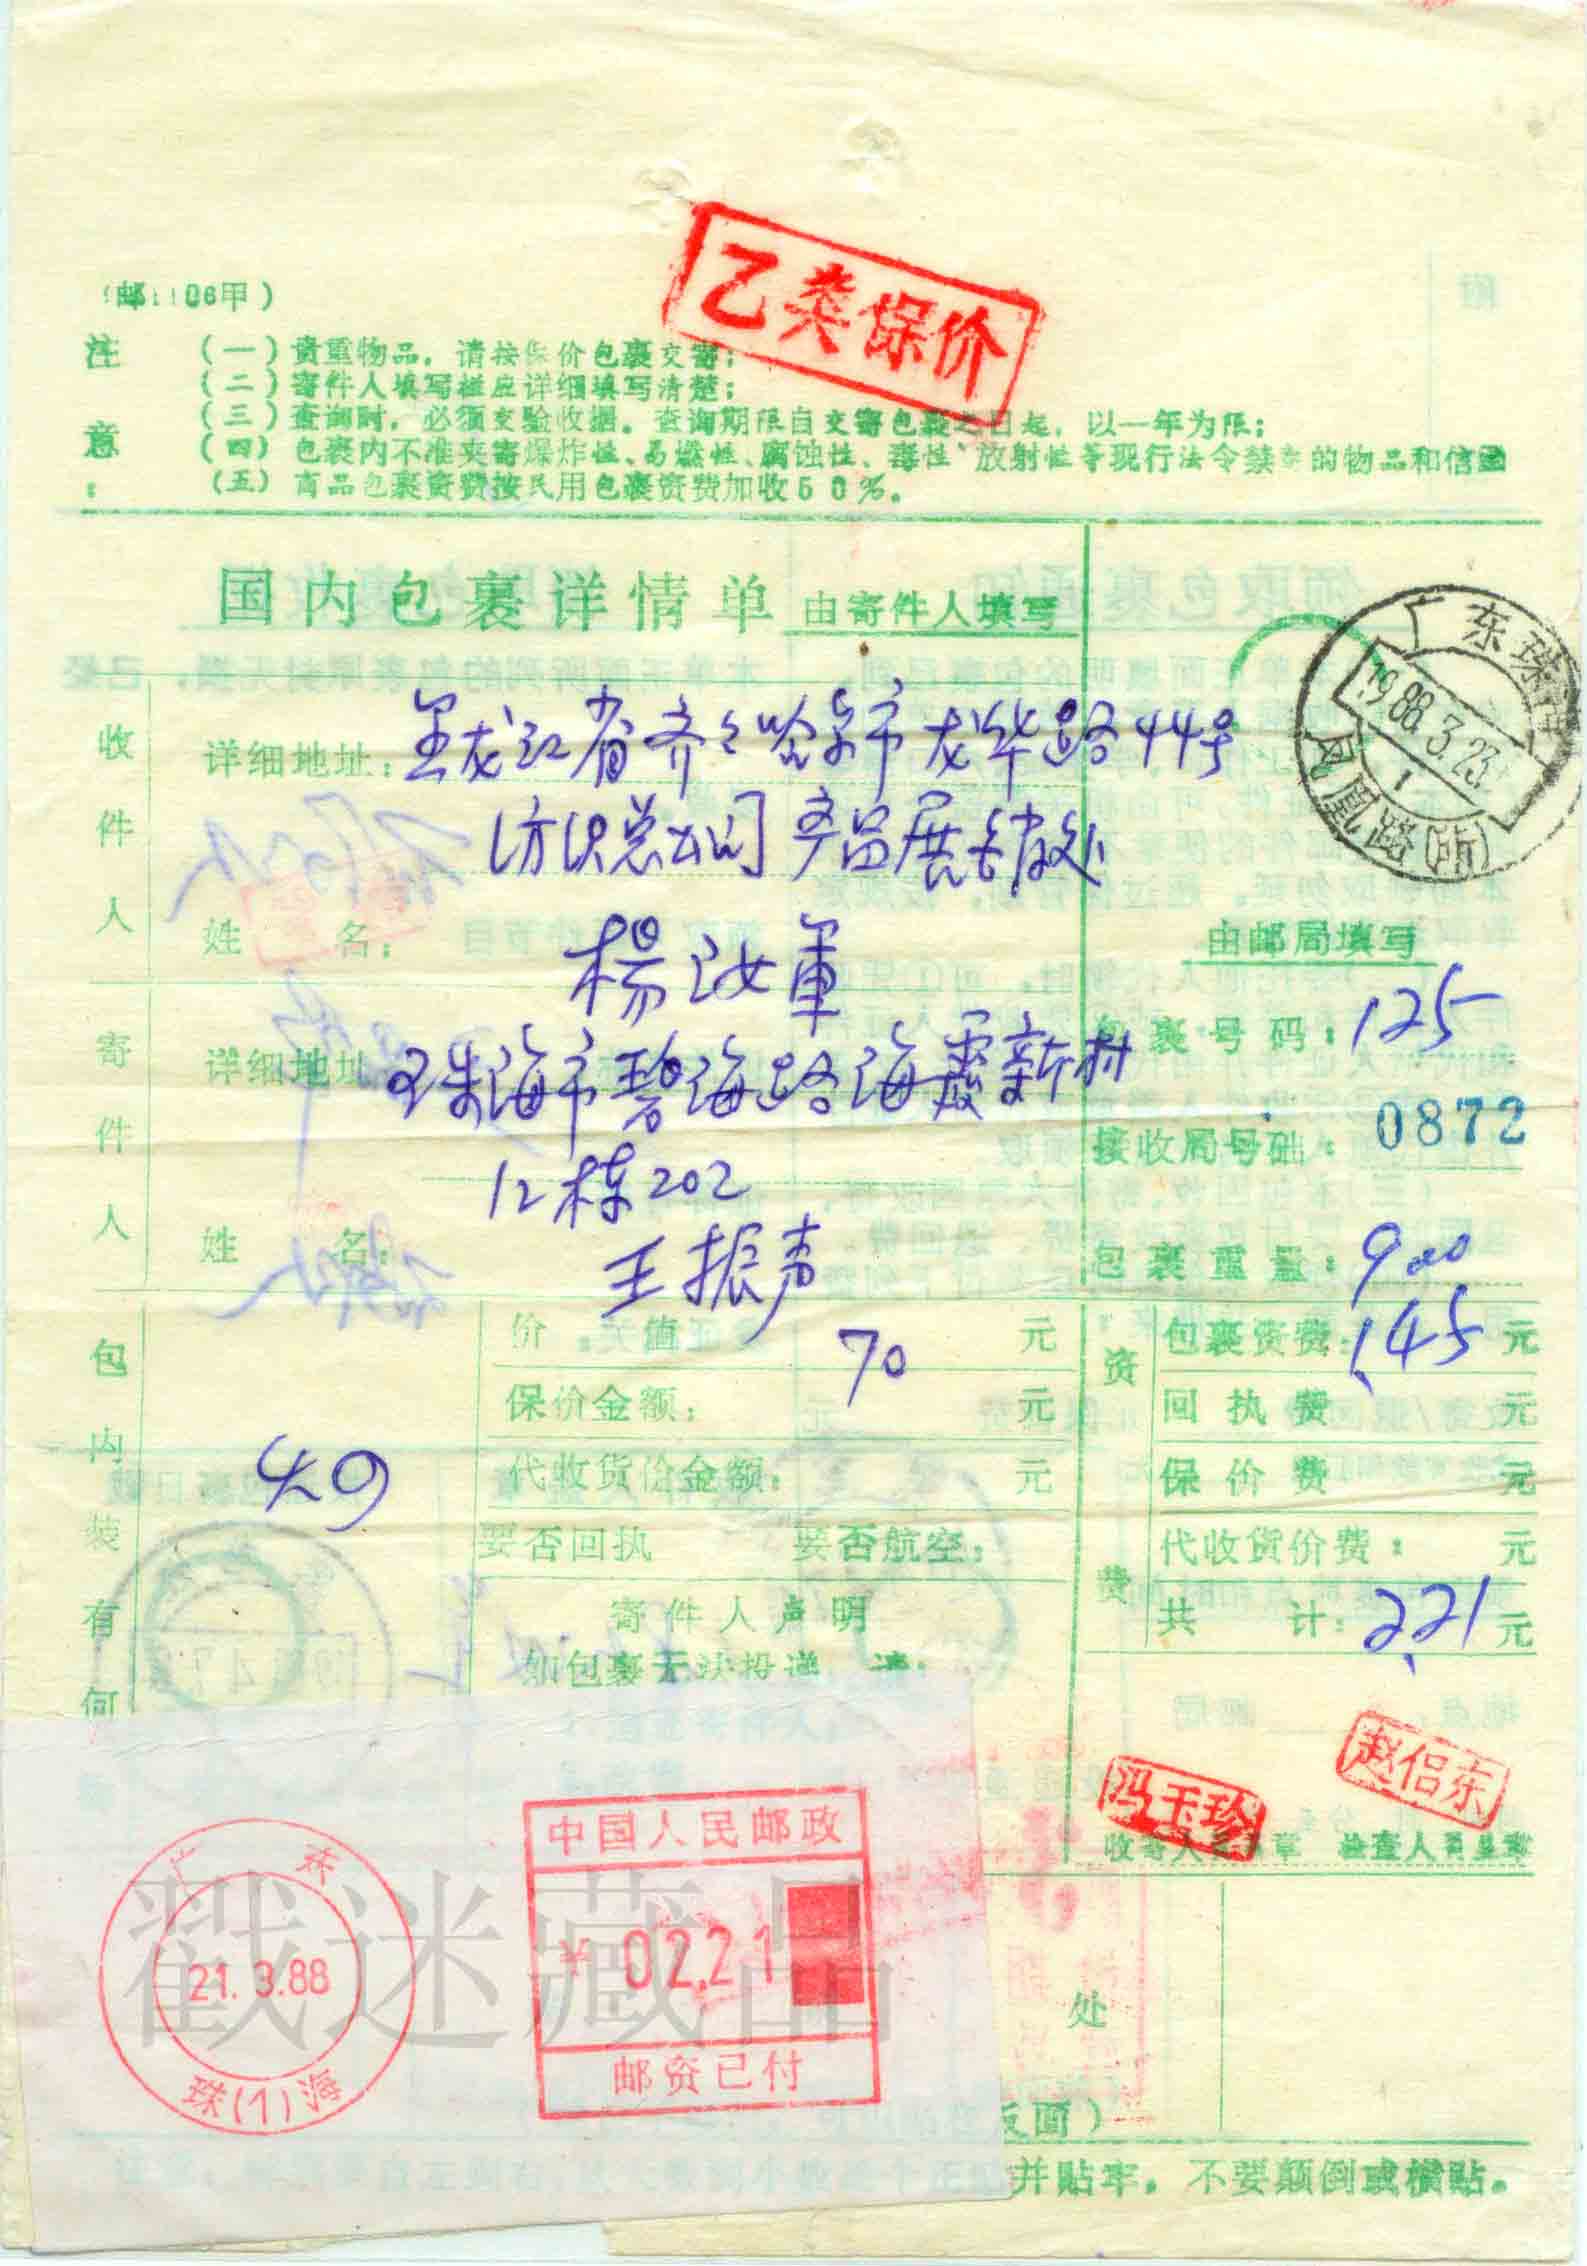 (邮1106甲)
乙类保价
注意：
(一)贵重物品，请按保价包裹交寄；
(二)寄件人填写栏应详细填写清楚；
(三)查询时，必须交验收据。查询期限自交寄包裹之日起，以一年为限；
(四)包裹内不准夹寄爆炸性、易燃性、腐蚀性、毒性、放射性等现行法令禁寄的物品和信函
(五)商品包裹资费按民用包裹资费加收50%。
国内包裹详情单 由寄件人填写
广东珠海
1988.3.23
1
凤凰路(所)
收件人
详细地址：黑龙江省齐々哈尔市龙华路44号
纺织总公司产品展销处
姓名：楊汝軍
寄件人
详细地址 珠海市碧海路海霞新村
12栋202
姓名：王振声
由邮局填写
包裹号码：125
接收局号码：0872
包裹重量：900
包内装有何
价值：70元
保价金额：元
代收货价金额：元
要否回执 要否航空：
寄件人声明
如包裹无法投递，请：
资费
包裹资费：1.45元
回执费 元
保价费 元
代收货价费：元
共计：2.21元
冯玉珍
赵侣东
收寄人员 章 检查人员
广东
21.3.88
珠(1)海
中国人民邮政
¥ 02.21
邮资已付
戳迷藏品
处
反面)
并贴牢。不要颠倒或横贴。